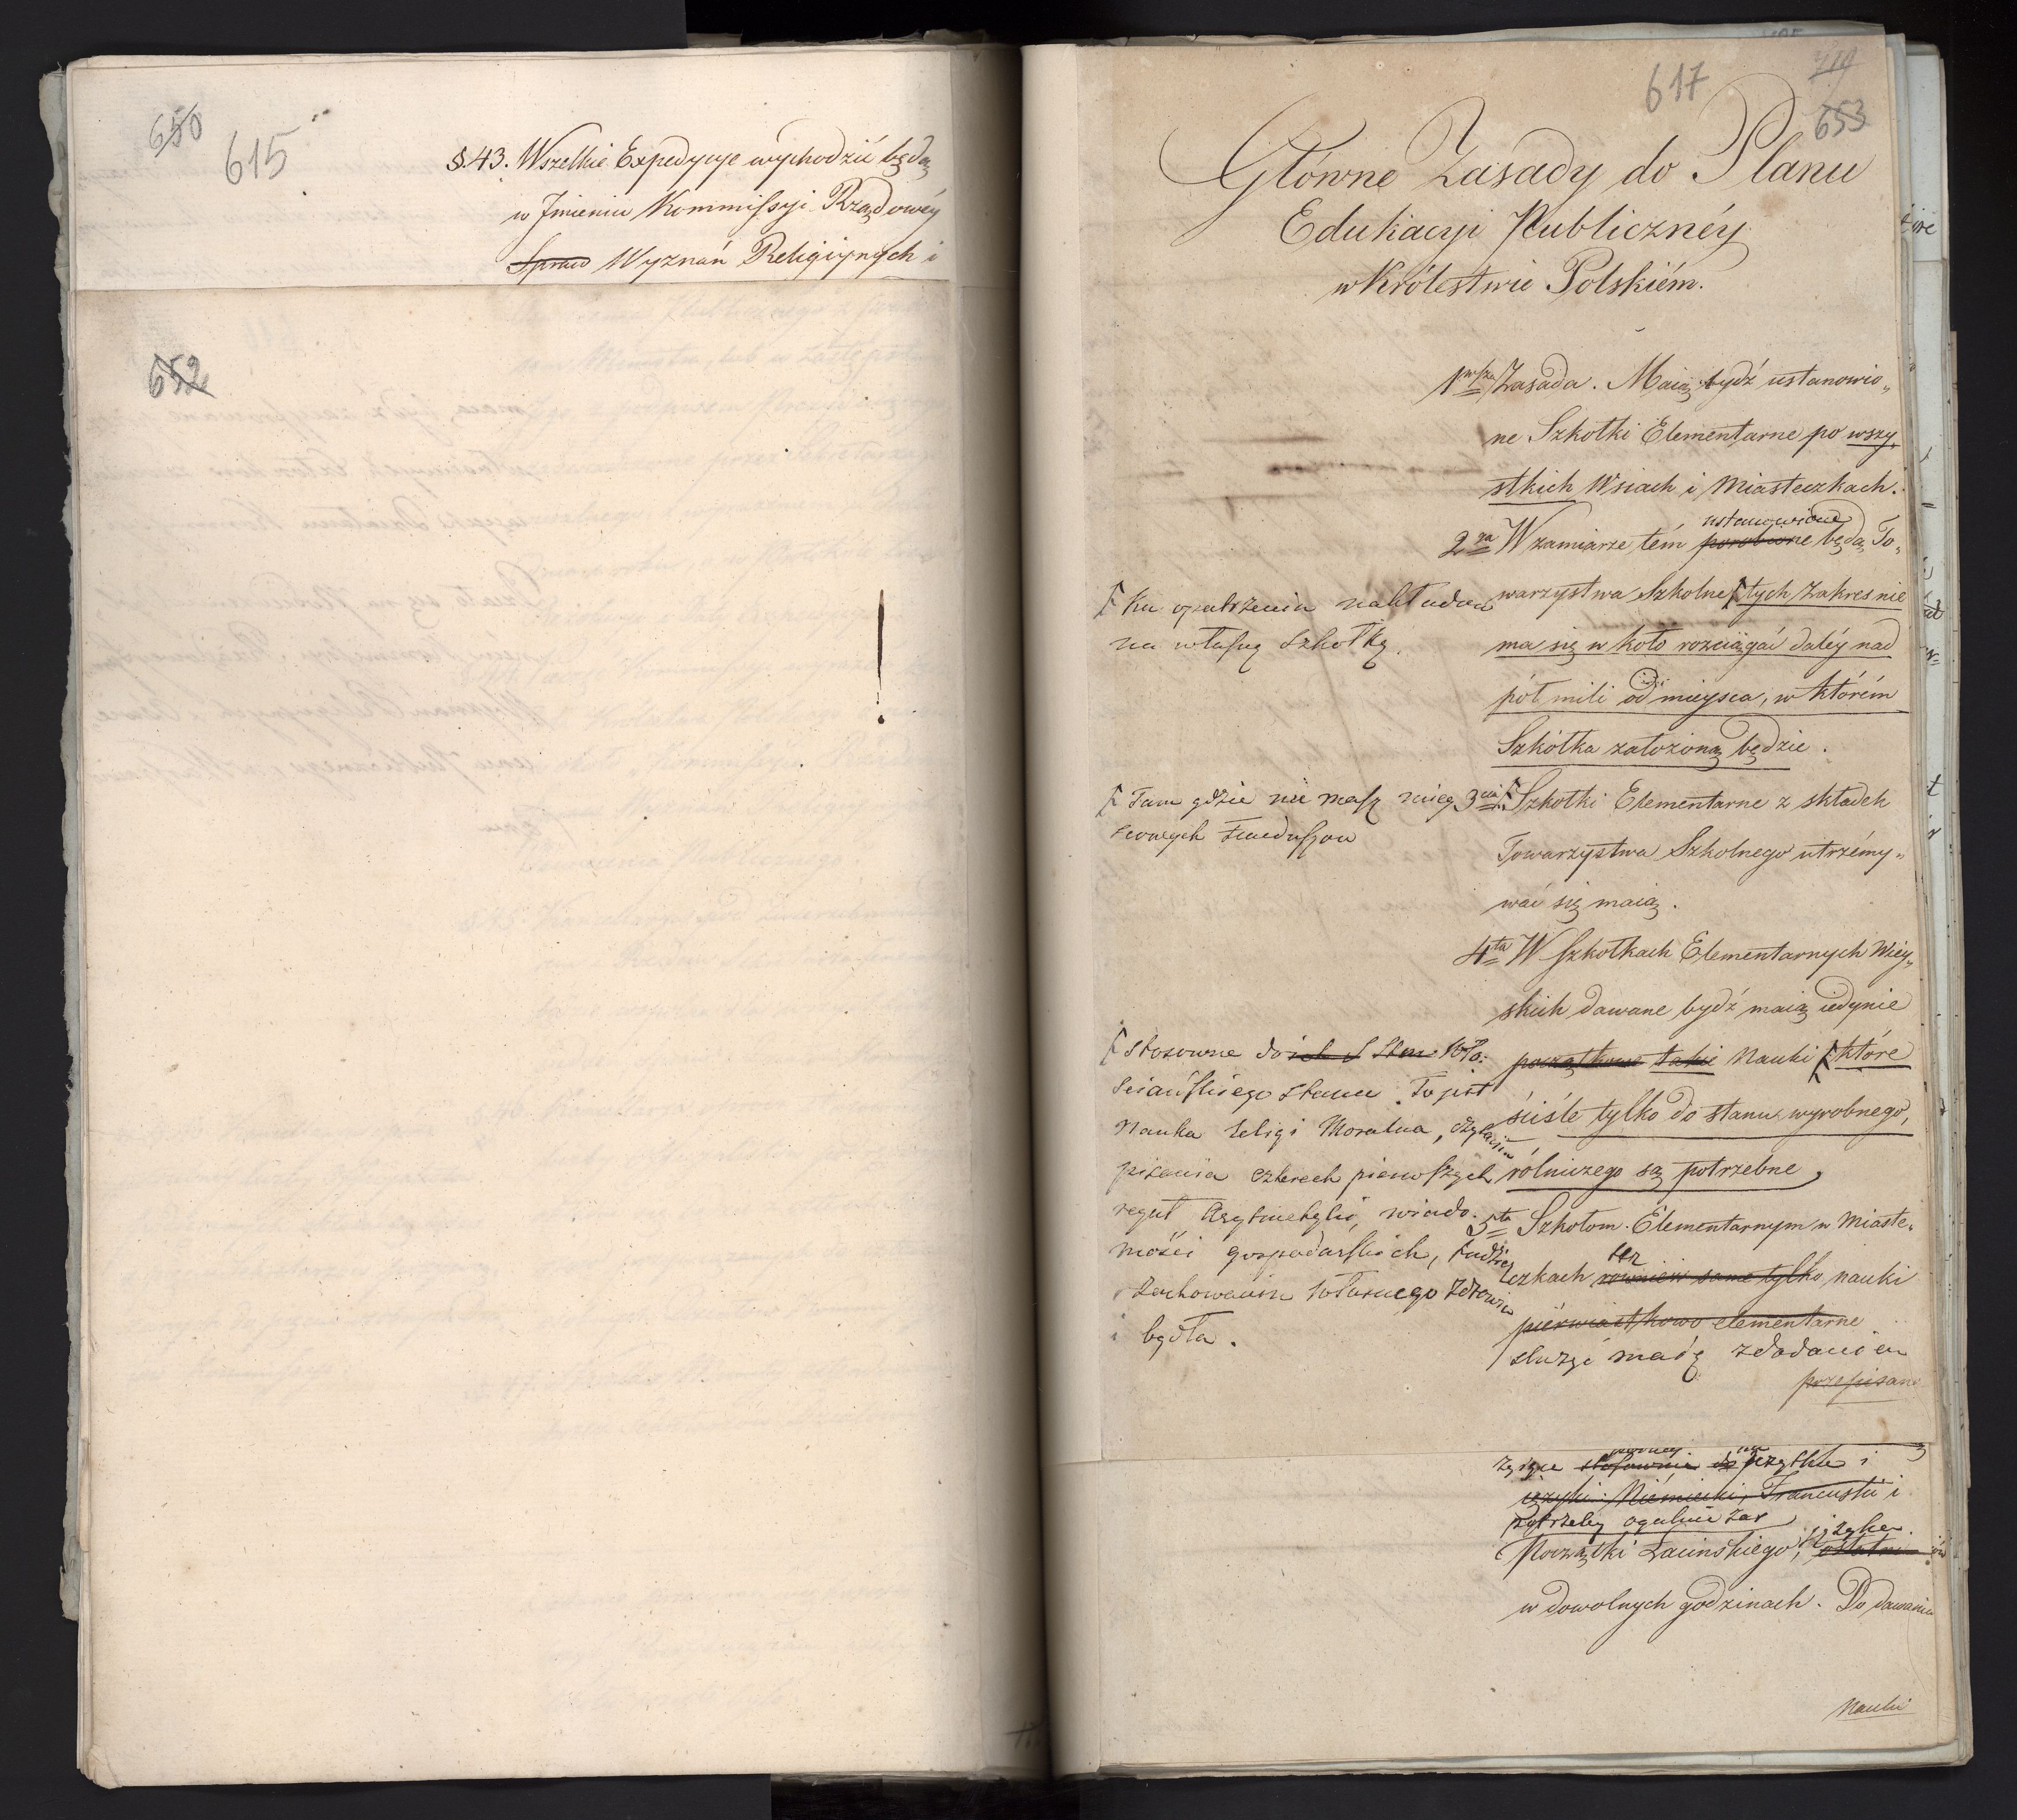 650
615
§.43. Wszelkie Expedycye wychodzić będą
w Jmieniu Kommissyi Rządowéy
Spraw Wyznań Religiynych i
652
617
719
653
Główne Zasady do Planu
Edukacyi Publicznéy
w Królestwie Polskiém.
1wsza Zasada. Maią bydź ustanowio„
ne Szkołki Elementarne po wszy„
stkich Wsiach i Miasteczkach.
ustanowione
2ga W zamiarze tém porobione będą To„
warzystwa Szkolne tych Zakres nie
ma się w koło rozciągać daléy nad
pół mili od mieysca, w którém
Szkółka założoną będzie.
Ku opatrzenia nakładow
na własną szkołkę.
3cia Szkołki Elementarne z składek
Towarzystwa Szkolnego utrzémy„
wać się maią.
Tam gdzie nie masz
Funduszow
4ta W Szkołkach Elementarnych Wiéy„
skich dawane bydź maią iedynie
początkowe takie Nauki które
ściśle tylko do stanu wyrobnego,
rólniczego są potrzebne,
stosowne do Wło:
sciańskiego stanu. To jest
Nauka Religi Moralna, czytania
pisania czterech pierwszych
reguł Arytmetyki, wiado„
mości gospodarskich, tudzież
zachowania własnego zdrowia
i bydła.
5ta Szkołom Elementarnym w Miaste„
też
czkach rownież same tylko nauki
pierwiastkowo elementarne
służyć maią z dodaniem
przepisane
stosownie do użytku i
ięzyki Niémiecki, Francuski i
potrzeby ogulnie zas
Początki Łacinskiego, języka
w dowolnych godzinach. Do dawania
Nauki